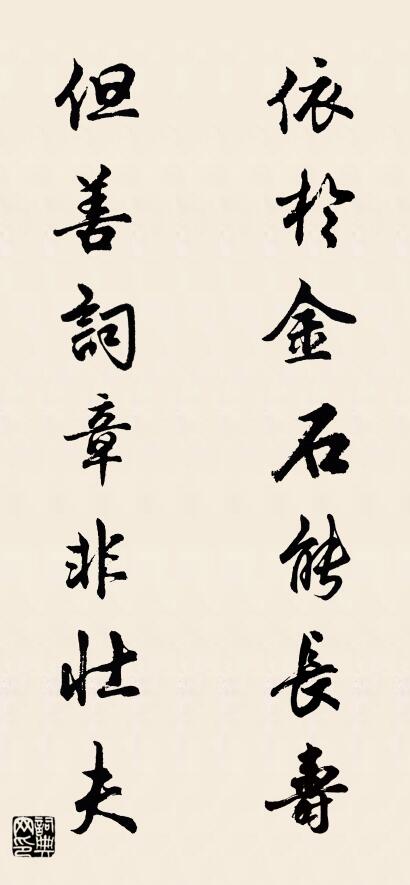 依於金石能長壽
但善詞章非壯夫
詞典網印